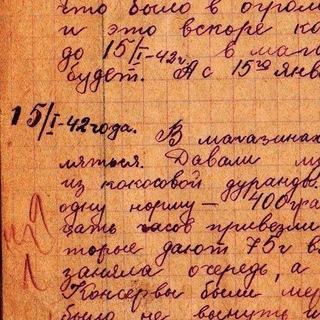 что было в огром
и это вскоре ко
до 15/I-42г. в мага
будет. А с 15го янв
15/I-42 года. В магазинах
мяться. Давали м
из кокосовой дуранды.
одну норму — 400гра
цать часов привезли
торые дают 75г в
заняла очередь, а
Консервы были мер
было не воткнуть и